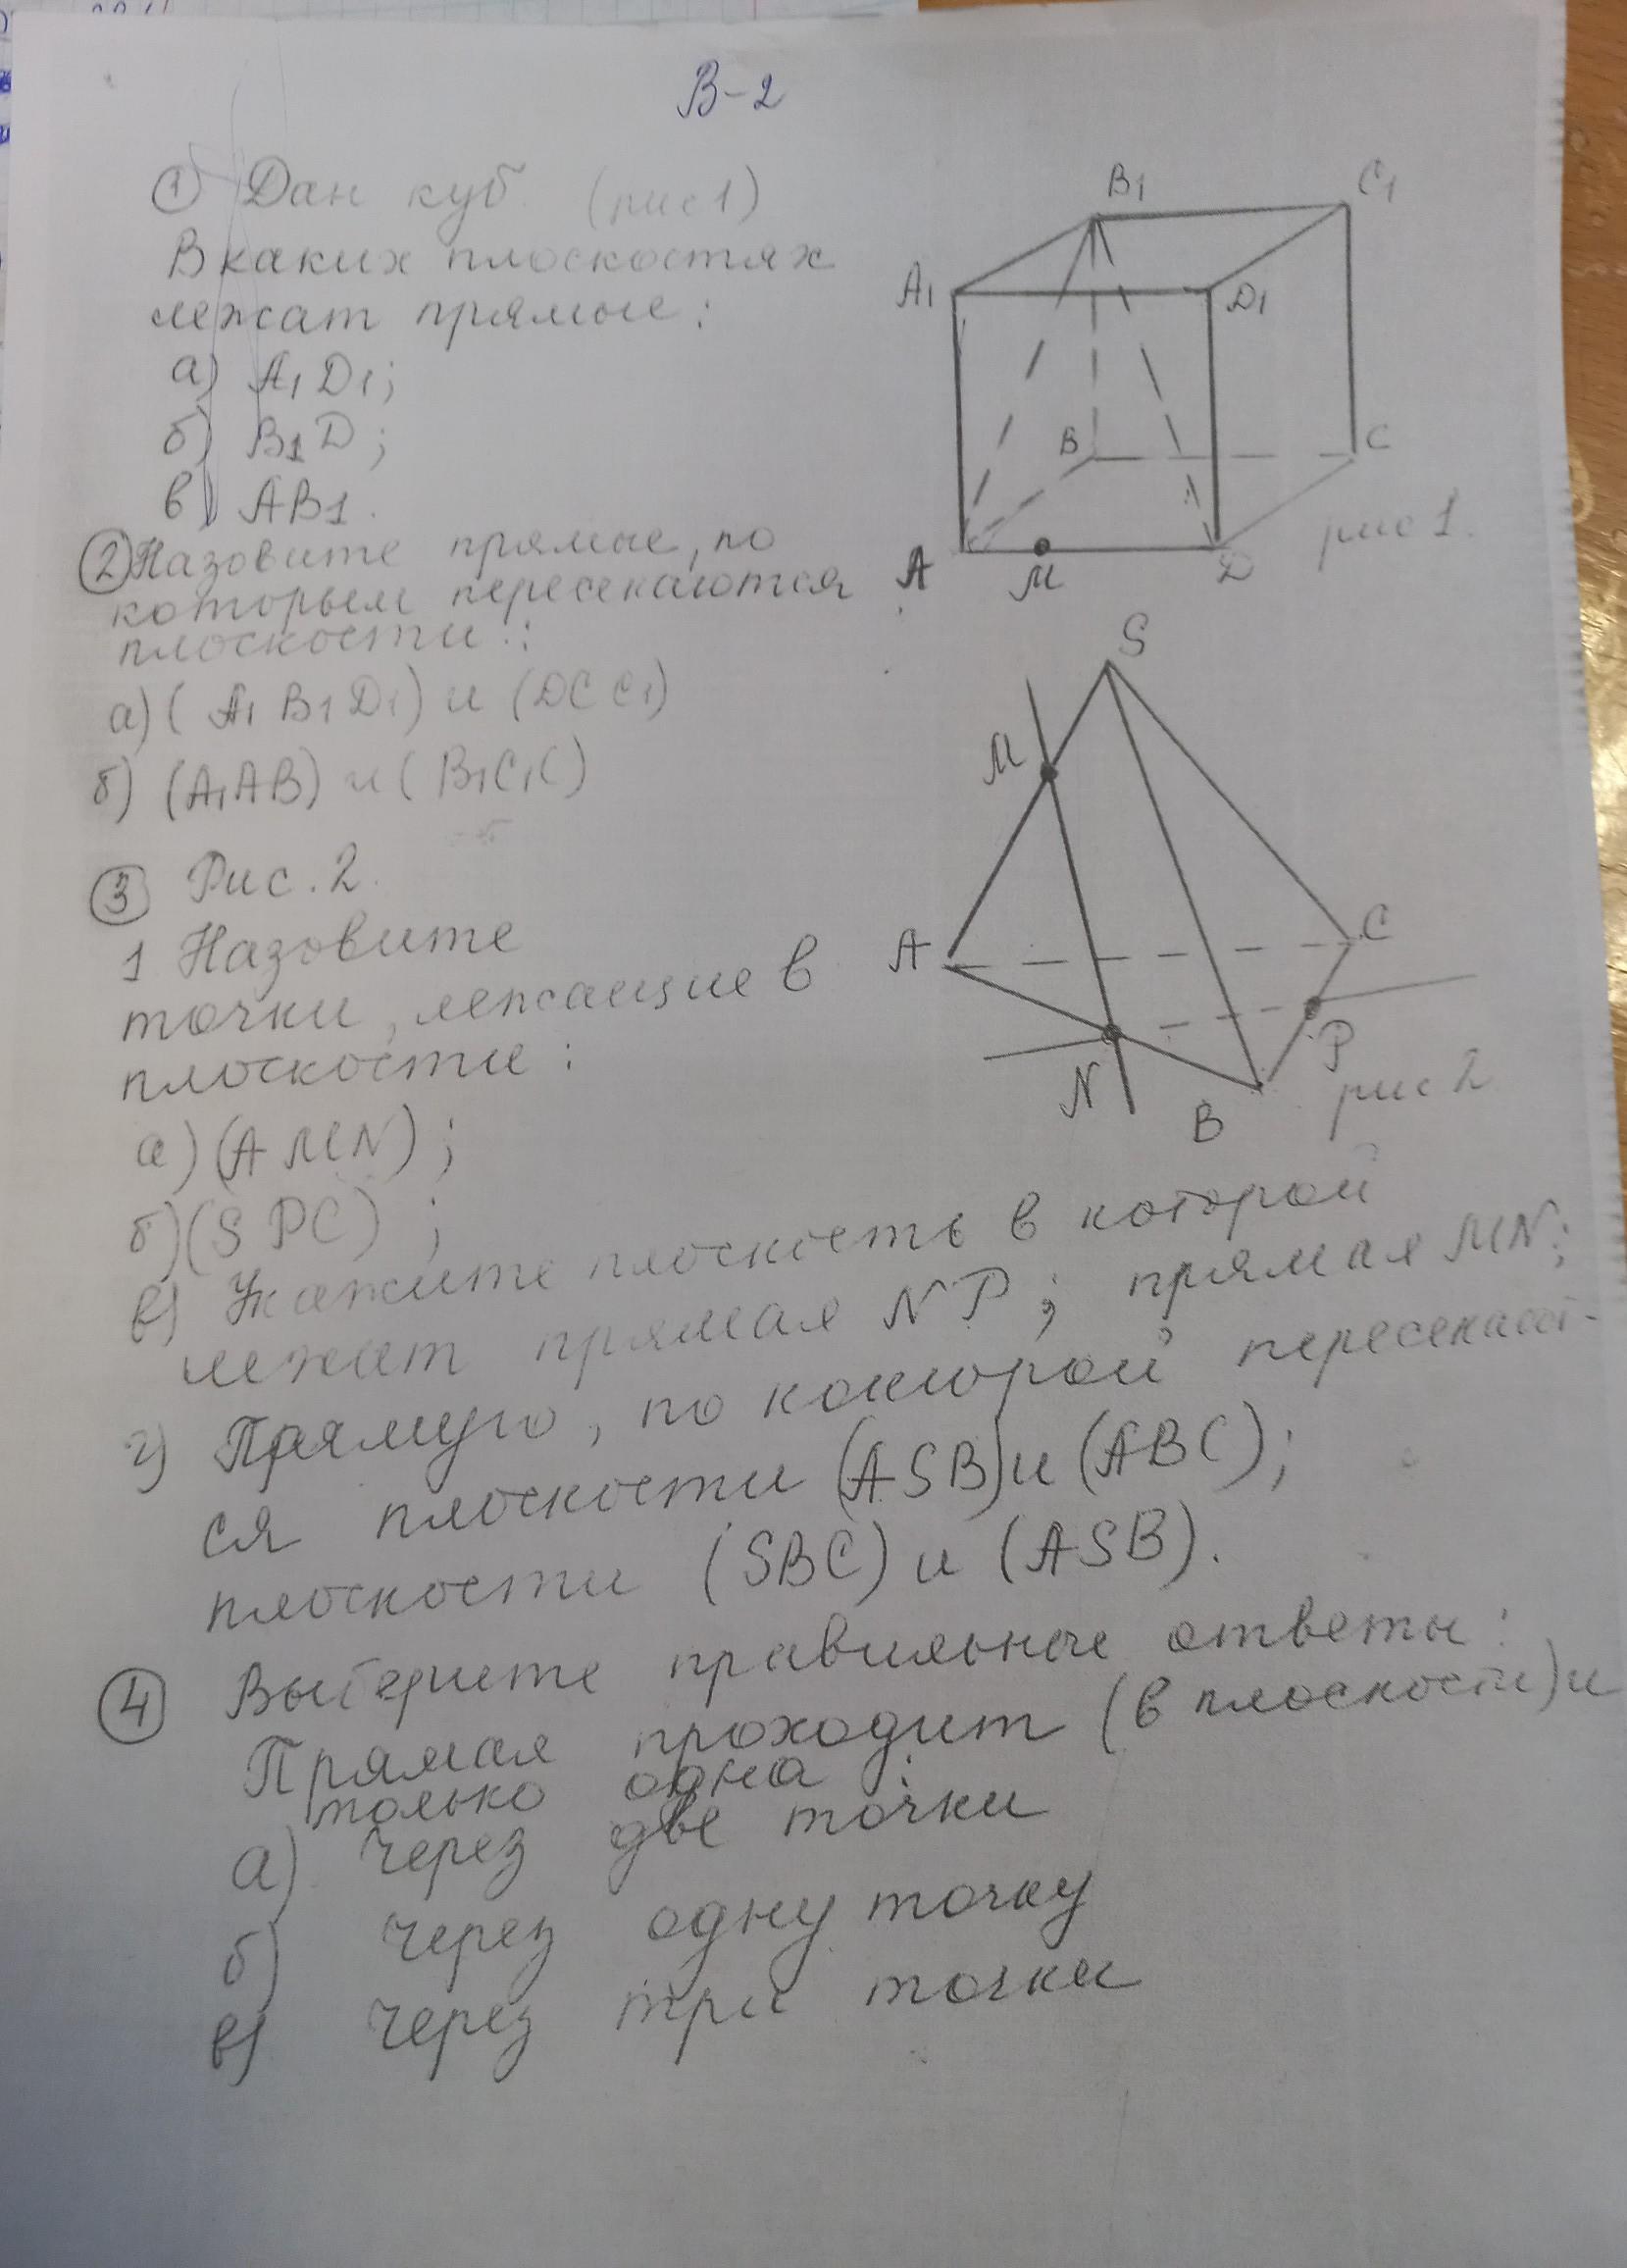 В-2
① Дан куб (рис 1)
В каких плоскостях
лежат прямые:
а) A1D1;
б) B1D;
в) AB1.
② Назовите прямые, по
которым пересекаются
плоскости:
а) (A1B1D1) и (DCC1)
б) (A1AB) и (B1C1C)
③ Рис. 2.
1 Назовите
точки, лежащие в
плоскости:
а) (AMN);
б) (SPC);
в) Укажите плоскость в которой
лежит прямая NP; прямая MN;
г) Прямую, по которой пересекают-
ся плоскости (ASB) и (ABC);
плоскости (SBC) и (ASB).
④ Выберите правильные ответы:
Прямая проходит (в плоскости) и
только одна:
а) через две точки
б) через одну точку
в) через три точки
B1
C1
A1
D1
B
C
A
M
D
рис 1.
S
M
A
C
N
P
B
рис 2